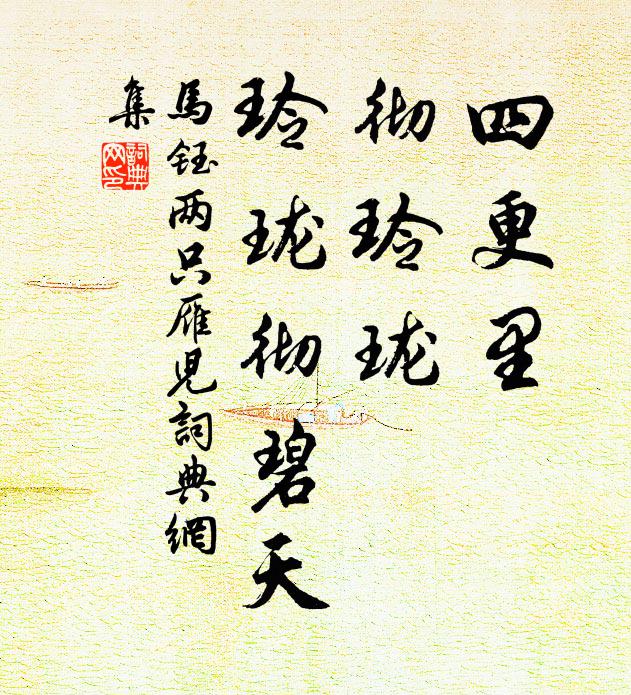 四更里
彻玲珑
玲珑彻碧天
馬鈺两只雁児詞典網
集
詞典
网印